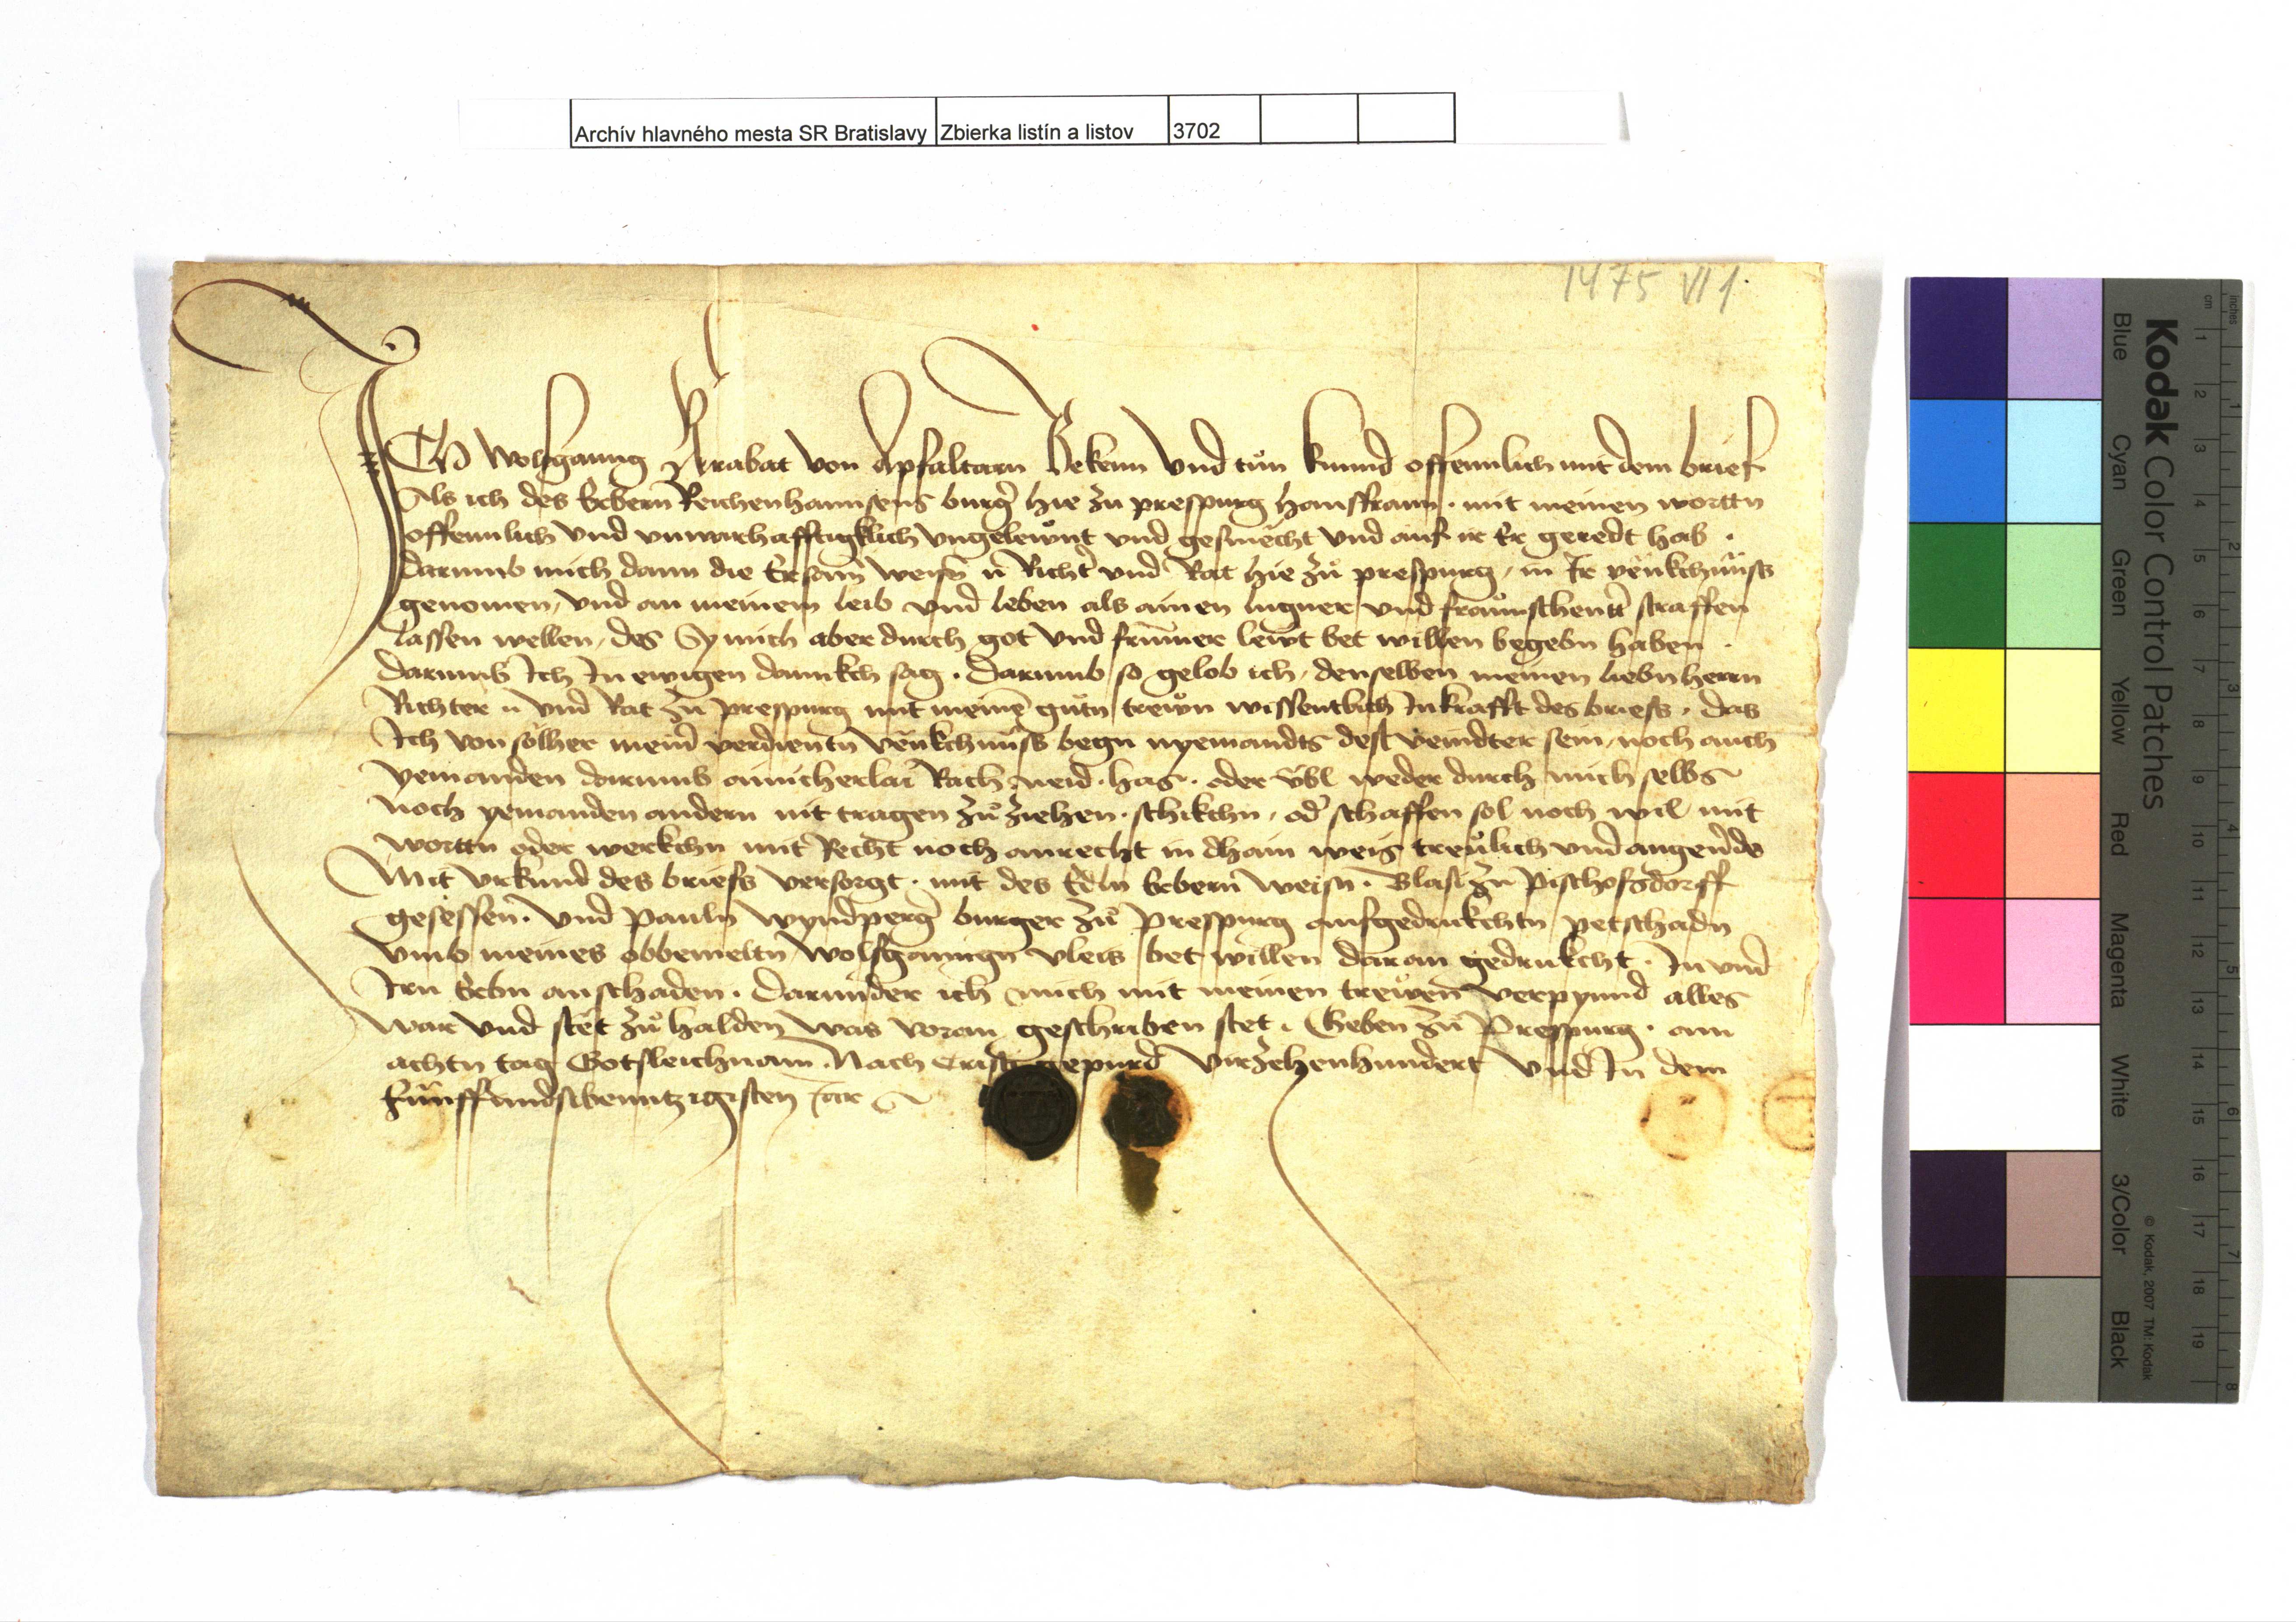 Archív hlavného mesta SR Bratislavy Zbierka listín a listov 3702
1475 VI 1.
ICH Wolfganng Krabat von Apfaltarn Bekenn Vnd tůn kunnd offennlich mit dem brief
Als ich des Erbern Reichenhannsens burgˀ hie zu prespurg hausfraun · mit meinen wortten
offennlich vnd vnwarhafftigklich vngelewnt vnd gesmecht vnd auf ir Er geredt hab ·
darumb mich dann die Ersamen weisen n Richtˀ vnd Rat hie zů prespurg / in Ir venkchnüss
genomen / vnd an meinem leib vnd leben als ainen lugner vnd fraunschenttˀ straffen
lassen wellen / des Sy mich aber durch got vnd frummer lewt bet willen begebn haben ·
darumb Ich In ewigen dannkch sag · Darumb so gelob ich / denselben meinen liebn herrn
Richter n vnd Rat zu prespurg mit meinē gůtn trewn wissentlich Inkrafft des briefs · das
Ich von solher meinˀ verdientn venkchnüss wegn nyemandts dest veindter sein / noch auch
yemanden darumb ainicherlai Rach neid · has · oder übl weder durch mich selbs
noch yemanden andern nit tragen zů ziehen · schikchn / odˀ schaffen sol noch wil mit
wortten oder werkchn mit Recht noch anrecht in dhain weis treulich vnd angeuˀde
Mit vrkund des briefs versorgt · mit des Edln Erbern weisn · Blasi zu Pischofsdorff
gesessen · Vnd Pauln Wyndpergˀ burger zů Prespurg aufgedrukchtn petschadn
vmb meines obbemeltn Wolfganngn vleis bet willen daran gedrukcht · In vnd
Irn Erbn anschaden · Darunder ich mich mit meinen trewen verpynnd alles
war vnd stët zů halden was voran geschriben stet · Geben zů Prespurg · am
achtn tag Gotsleichnam · Nach Cristi gepurd Virzehenhundert Vnd In dem
fünffundsibenntzigisten Jar
Kodak Color Control Patches
Blue Cyan Green Yellow Red Magenta White 3/Color Black
© Kodak, 2007 TM: Kodak
inches 1 2 3 4 5 6 7 8
cm 1 2 3 4 5 6 7 8 9 10 11 12 13 14 15 16 17 18 19